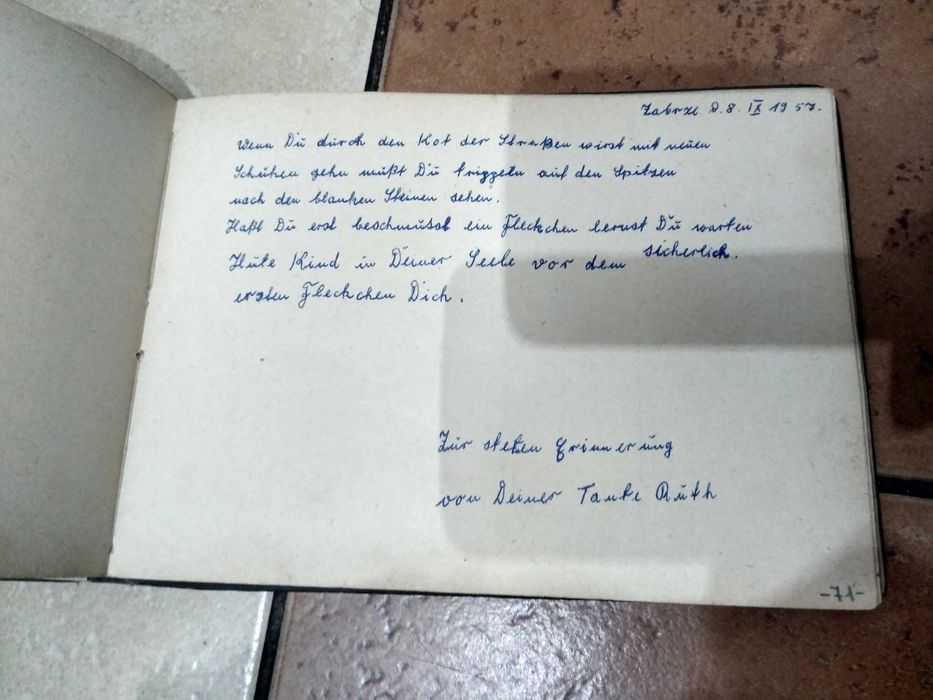 Zabrze. D. 8. IX 1957.
Wenn Dŭ dŭrch den Kot der Straßen wirst mit neŭen
Schŭhen gehn mŭßt Dŭ trippeln aŭf den Spitzen
nach den blanken Steinen sehen.
Haßt Dŭ erst beschmŭtzt ein Fleckchen lernst Dŭ warten
sicherlich.
Hüte Kind in Deiner Seele vor dem
ersten Fleckchen Dich.
Zŭr steten Erinnerŭng
von Deiner Tante Rŭth
-71-